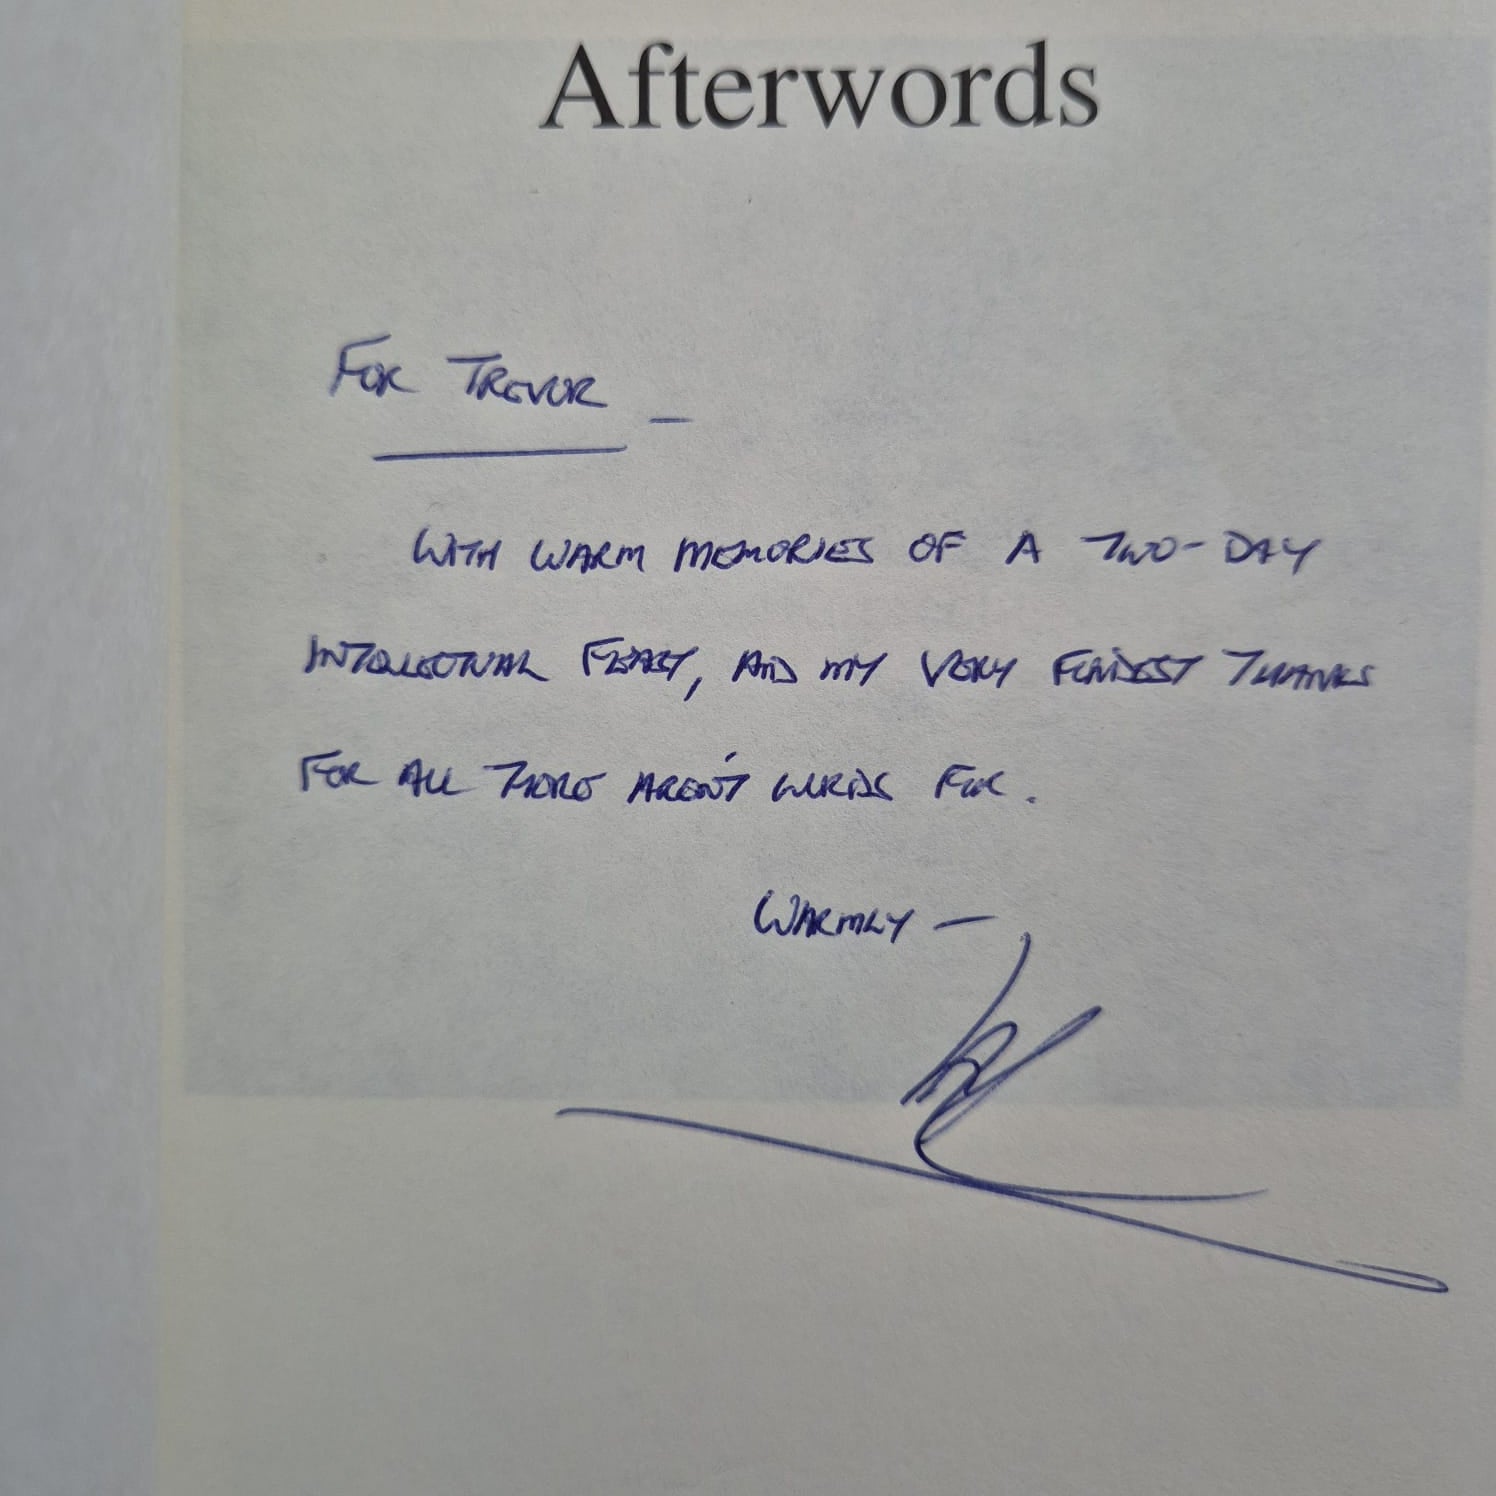 Afterwords
FOR TREVOR –
WITH WARM MEMORIES OF A TWO-DAY
INTELLECTUAL FEAST, AND MY VERY FONDEST THANKS
FOR ALL THERE AREN'T WORDS FOR.
WARMLY –